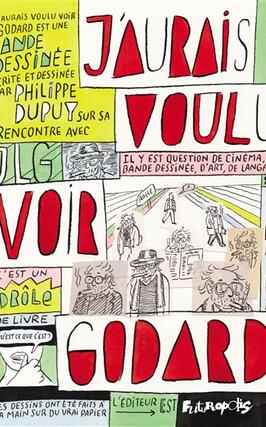 J'AURAIS VOULU VOIR
GODARD EST UNE
BANDE
DESSINÉE
ÉCRITE ET DESSINÉE
PAR PHILIPPE
DUPUY SUR SA
RENCONTRE AVEC
JLG
J'AURAIS
VOULU
VOIR
GODARD
IL Y EST QUESTION DE CINÉMA,
BANDE DESSINÉE, D'ART, DE LANGA
C'EST UN
DRÔLE
DE LIVRE
QU'EST CE QUE C'EST ?
LES DESSINS ONT ÉTÉ FAITS À
LA MAIN SUR DU VRAI PAPIER
L'ÉDITEUR EST
FUTUROPOLIS